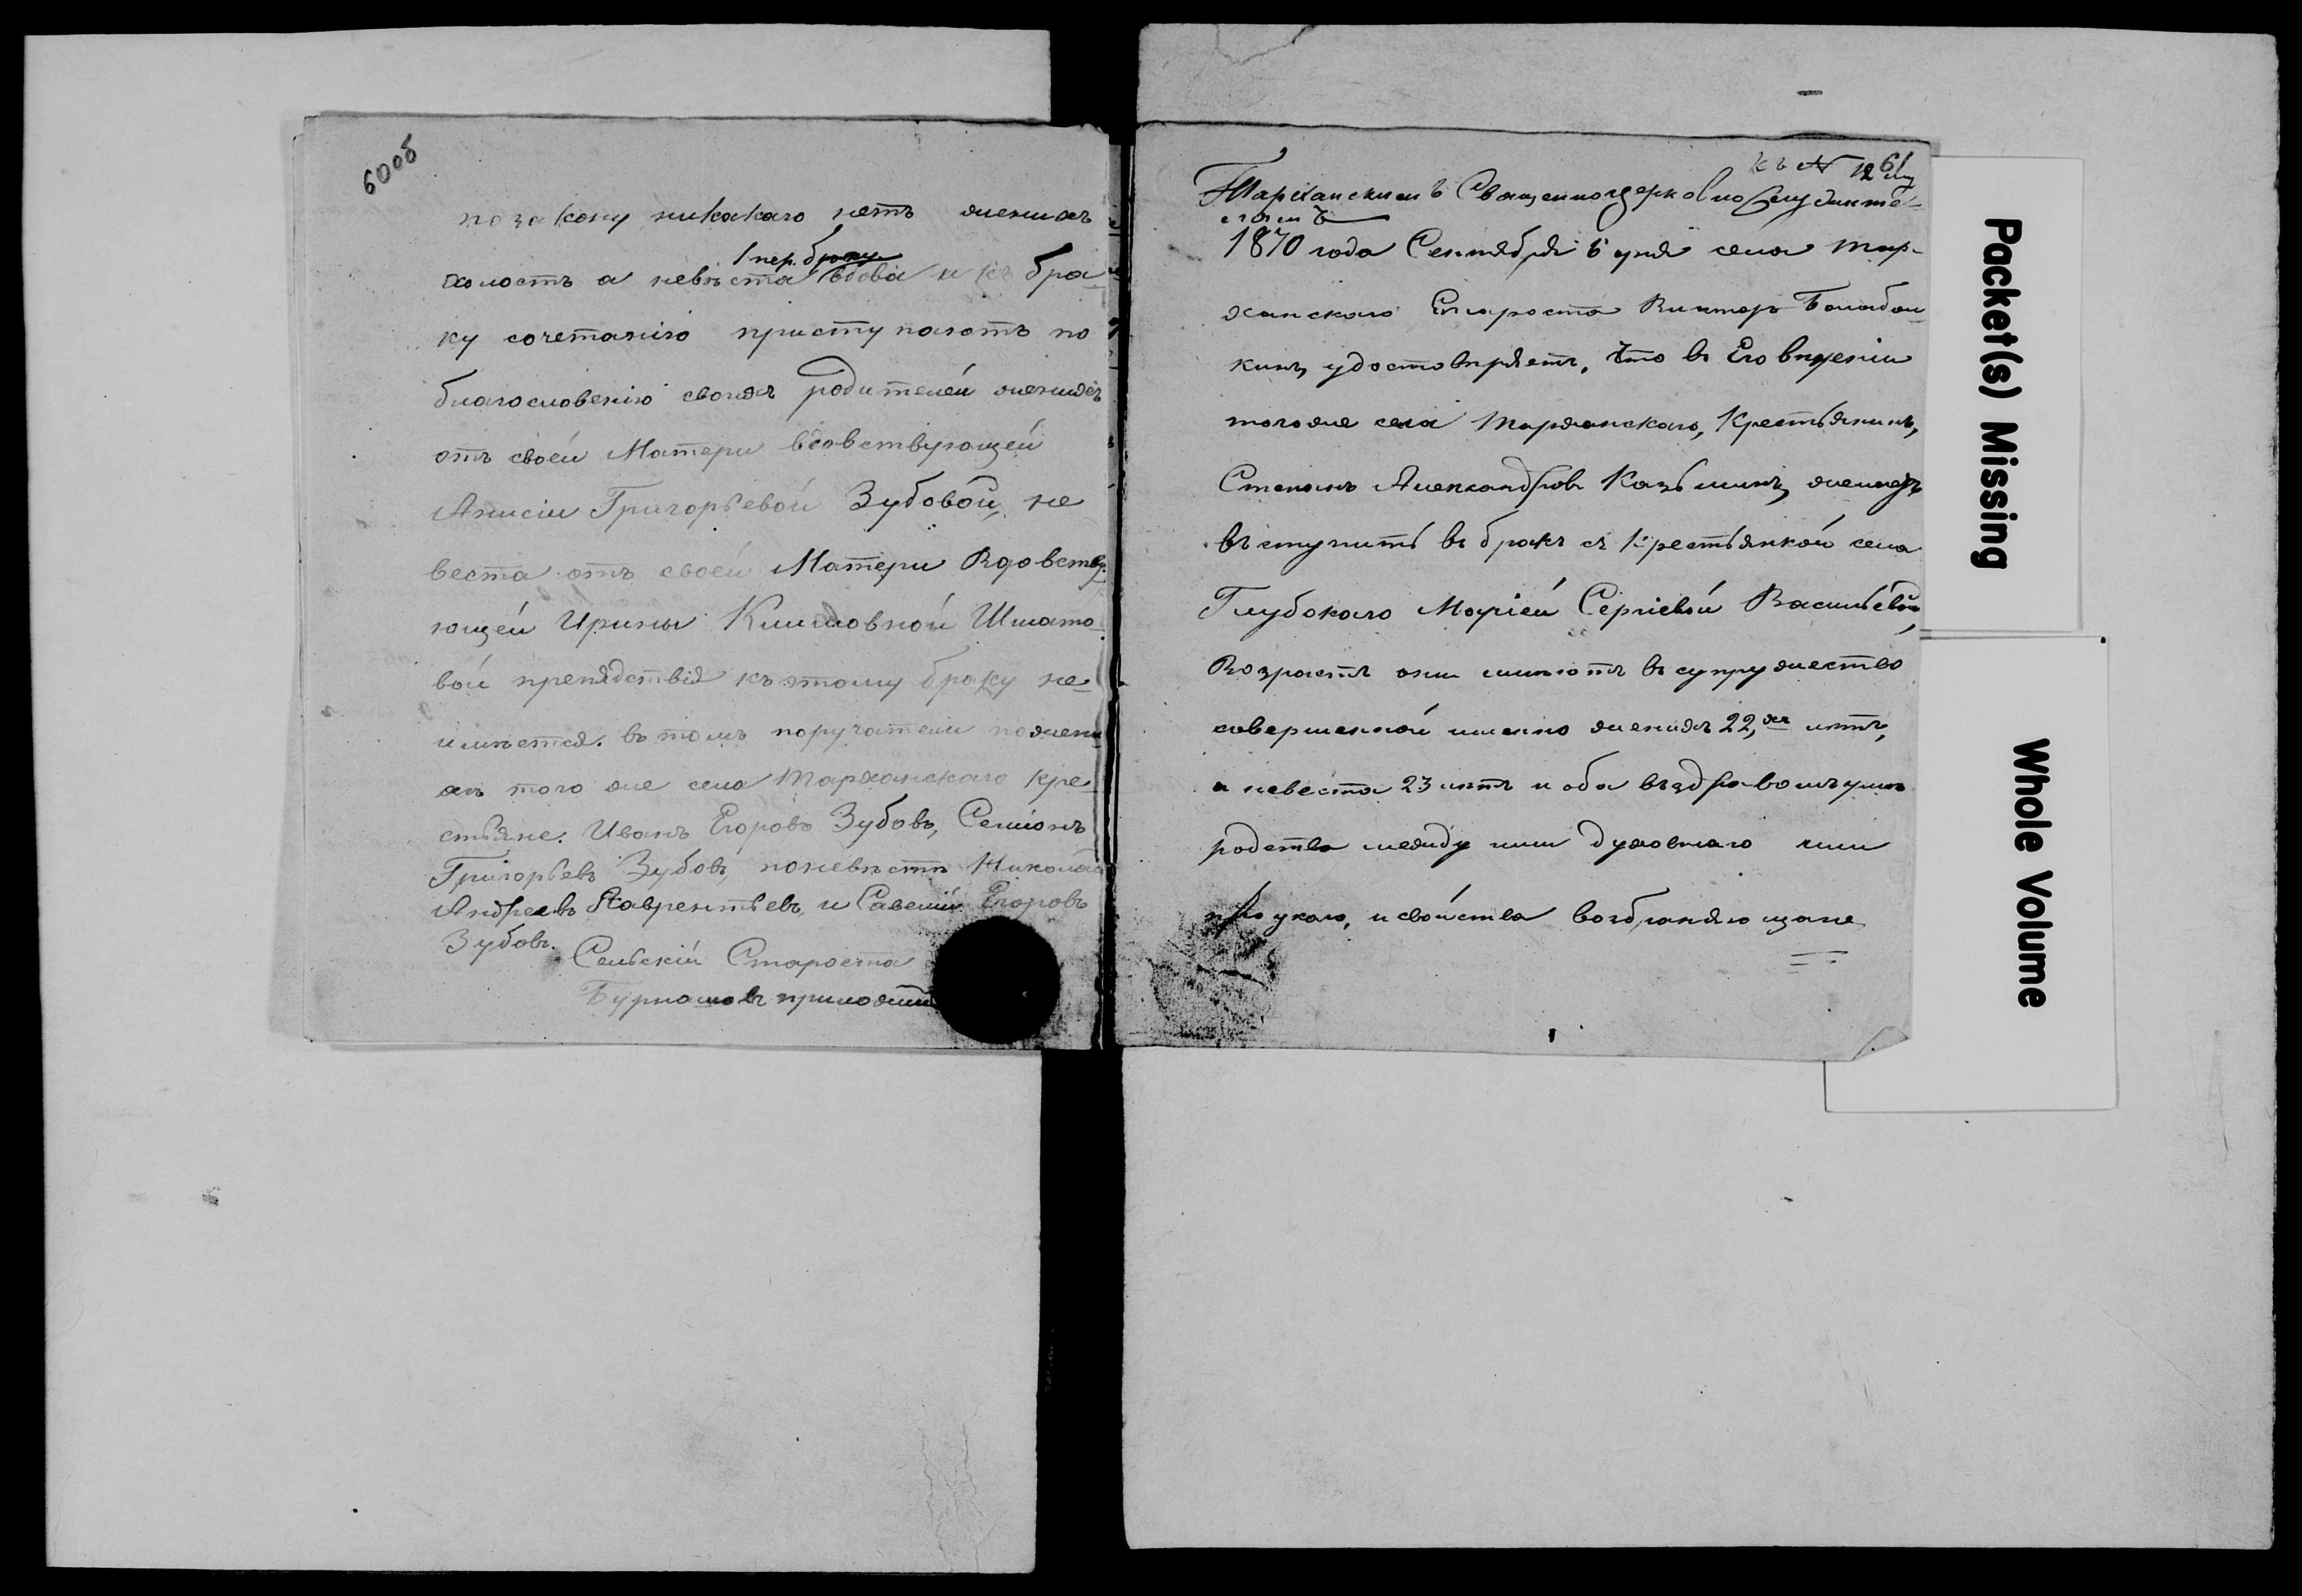 60об
по закону никакаго нетъ женихъ
1 пер. браку
холостъ а невѣста вдова и къ бра-
ку сочетанію приступаютъ по
благословенію своихъ родителей женихъ
отъ своей Матери вдовствующей
Анисіи Григорьевой Зубовой, не
веста отъ своей Матери Вдовству-
ющей Ирины Климовной Шмато-
вой препядствія къ этому браку не-
имѣется. въ томъ поручатели по жени
хѣ того же села Тарханскаго кре-
стьяне. Иванъ Егоровъ Зубовъ, Семіонъ
Григорьевъ Зубовъ, поневѣсте Николай
Андреевъ Лаврентьевъ, и Савелій Егоровъ
Зубовъ.
Сельскій Староста
Бурнашовъ приложилъ
къ № 12 61
Тарханскимъ Священноцерковно Служите-
лямъ
1870 года Сентября 6 дня села Тар-
ханскаго Староста Виктор Балабан-
кинъ удостовѣряетъ, что въ Его вѣденіи
тогоже села Тарханскаго, Крестьянинъ,
Степанъ Александровъ Казьминъ, женихъ
въступить въ бракъ съ Крестьянкой села
Глубокаго Маріей Сергіевой Васильевой,
Возрастъ они имѣютъ въ супружество
совершенной именно женихъ 22,хъ лѣтъ,
а невѣста 23 лѣтъ и оба въ здравомъ умѣ
родства между ими духовнаго или
другаго, и свойства возбраняющаго
Packet(s) Missing
Whole Volume